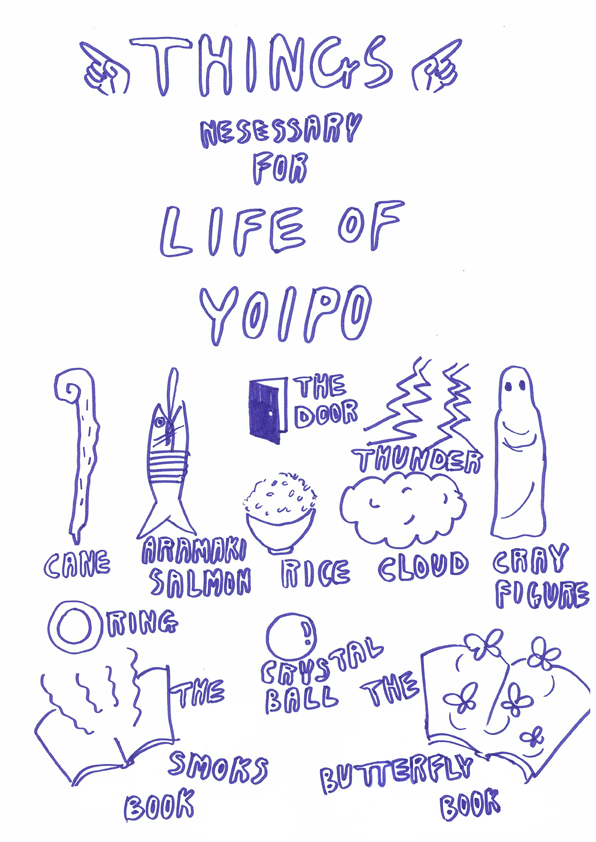 THINGS
NESESSARY
FOR
LIFE OF
YOIPO
THE
DOOR
THUNDER
CANE
ARAMAKI
SALMON
RICE
CLOUD
CRAY
FIGURE
RING
CRYSTAL
BALL
THE
SMOKS
BOOK
THE
BUTTERFLY
BOOK